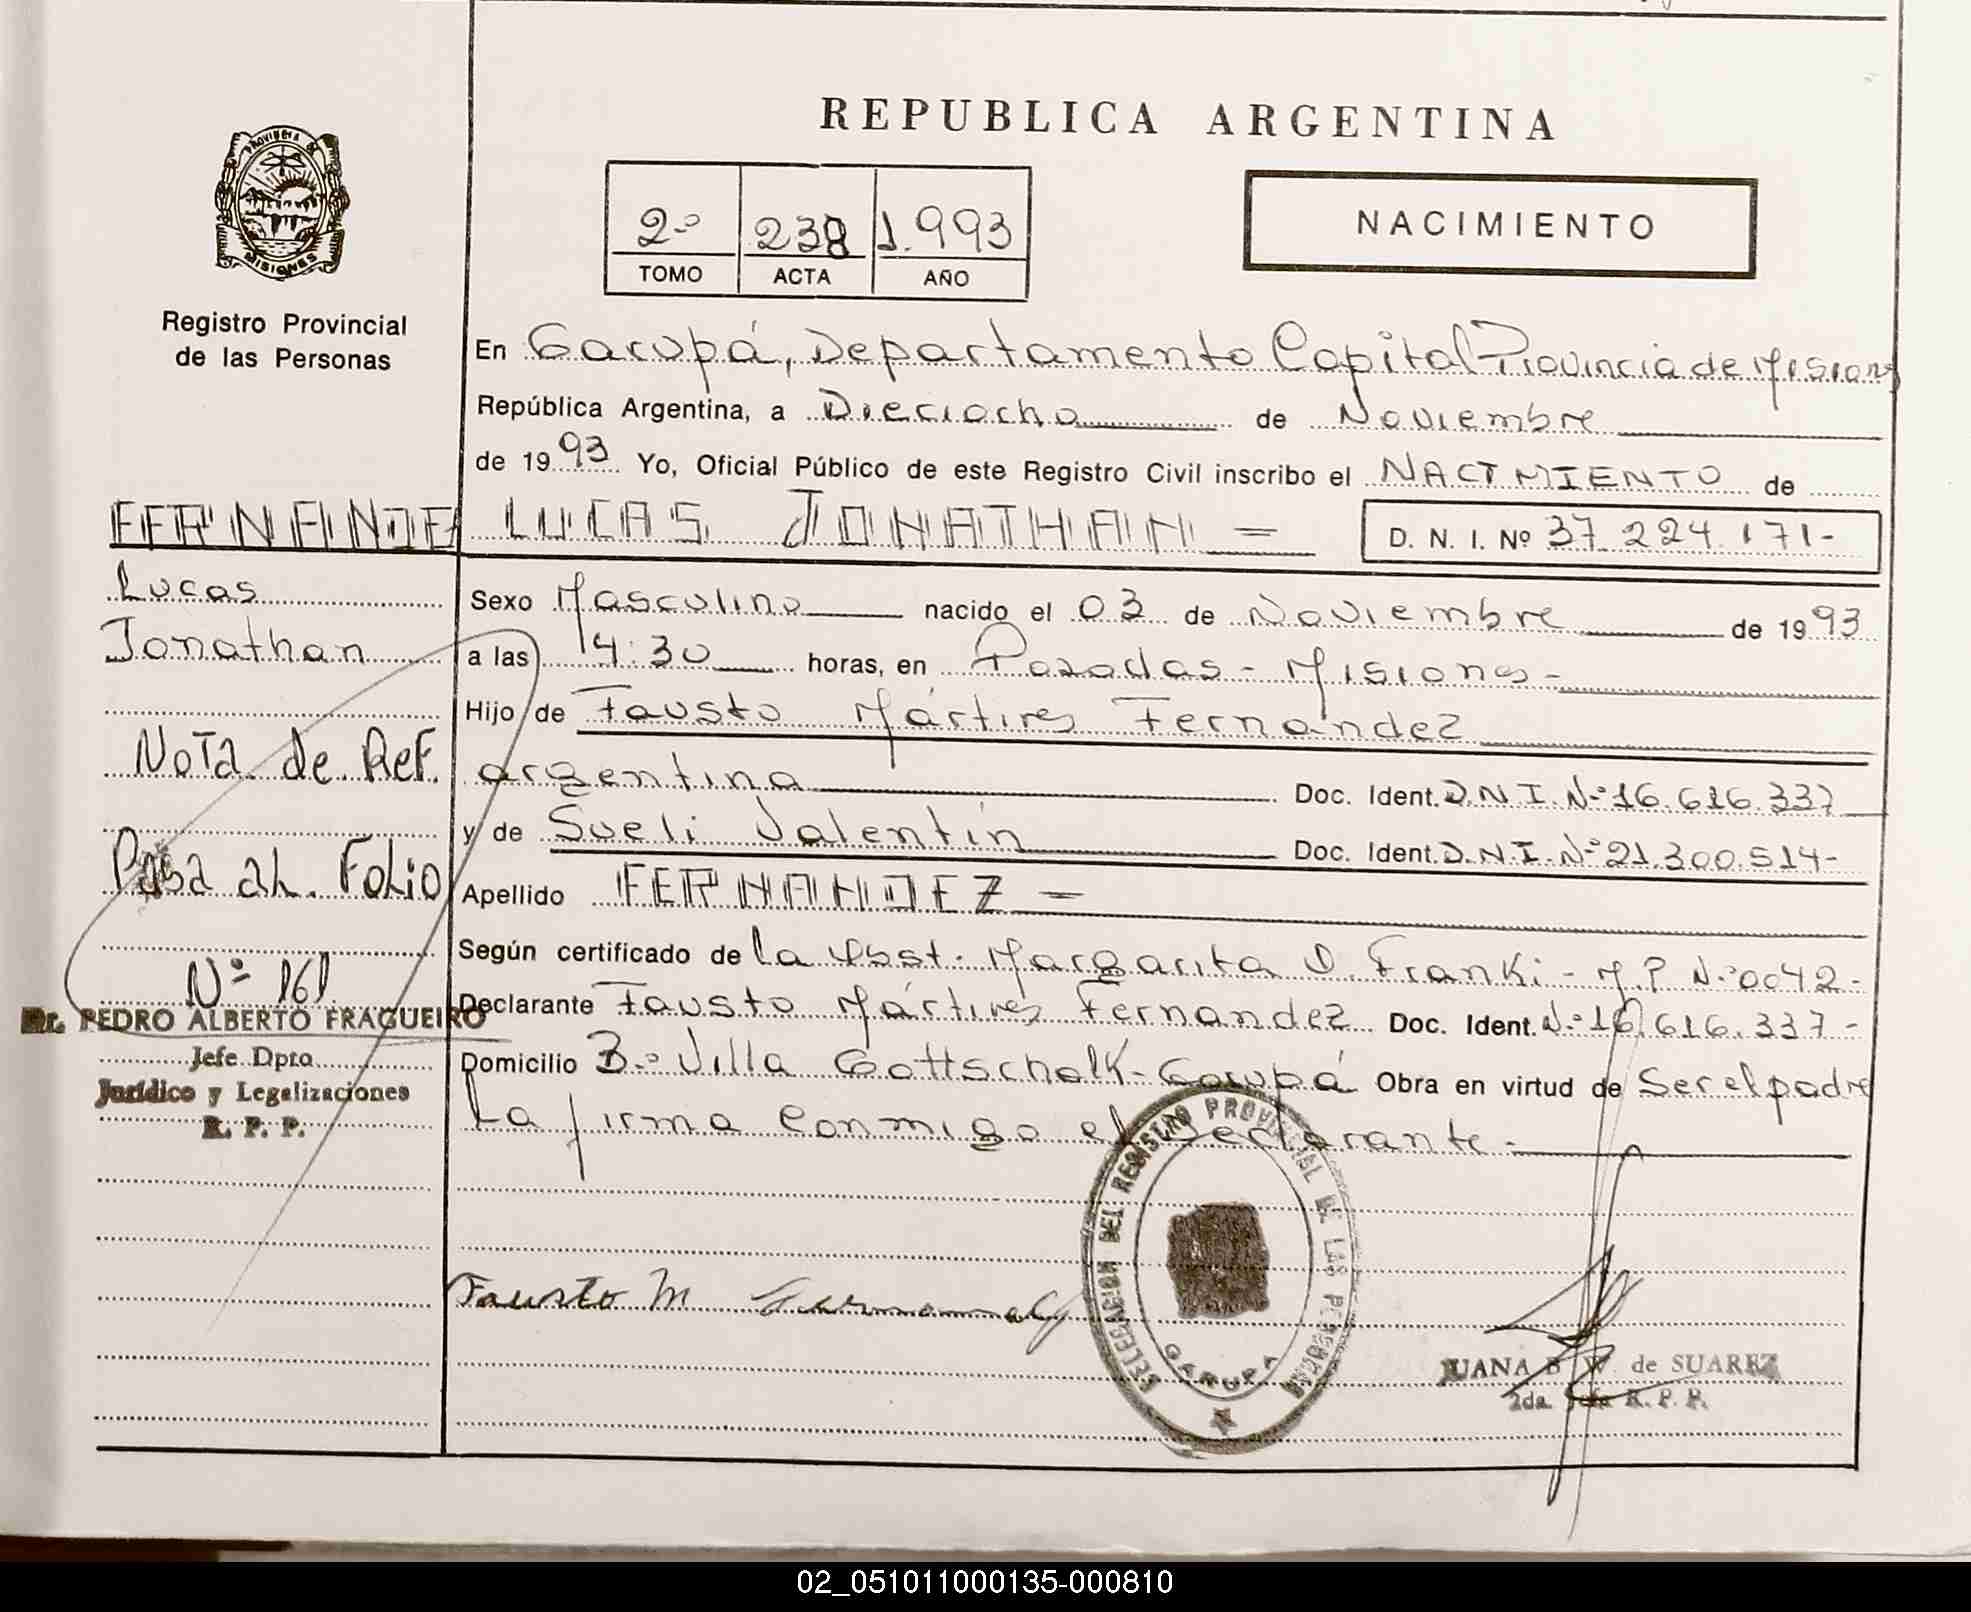 REPUBLICA ARGENTINA
PROVINCIA DE
MISIONES
Registro Provincial
de las Personas
2º 238 1.993
TOMO ACTA AÑO
NACIMIENTO
En Garupá, Departamento Capital Provincia de Misiones
República Argentina, a Dieciocho de Noviembre
de 1993 Yo, Oficial Público de este Registro Civil inscribo el NACIMIENTO de
LUCAS JONATHAN = D. N. I. Nº 37.224.171-
Sexo Masculino nacido el 03 de Noviembre de 1993
a las 14:30 horas, en Posadas - Misiones -
Hijo de Fausto Mártires Fernández
argentina Doc. Ident. D.N.I.Nº 16.616.337
y de Sueli Valentín Doc. Ident. D.N.I.Nº 21.300.514-
Apellido FERNANDEZ =
Según certificado de la Obst. Margarita D. Franki - M.P Nº 0042-
Declarante Fausto Mártires Fernandez Doc. Ident. Nº 16.616.337-
Domicilio Bº Villa Gottschalk - Garupá Obra en virtud de Ser el padre
La firma Conmigo el declarante.-
FERNANDE
Lucas
Jonathan
Nota de Ref.
Pasa al Folio
Nº 161
Dr. PEDRO ALBERTO FRAGUEIRO
Jefe Dpto
Jurídico y Legalizaciones
R. P. P.
Fausto M Fernandez
DELEGACION DEL REGISTRO PROVINCIAL DE LAS PERSONAS
GARUPA
JUANA B W. de SUAREZ
2da. R. P. P.
02_051011000135-000810